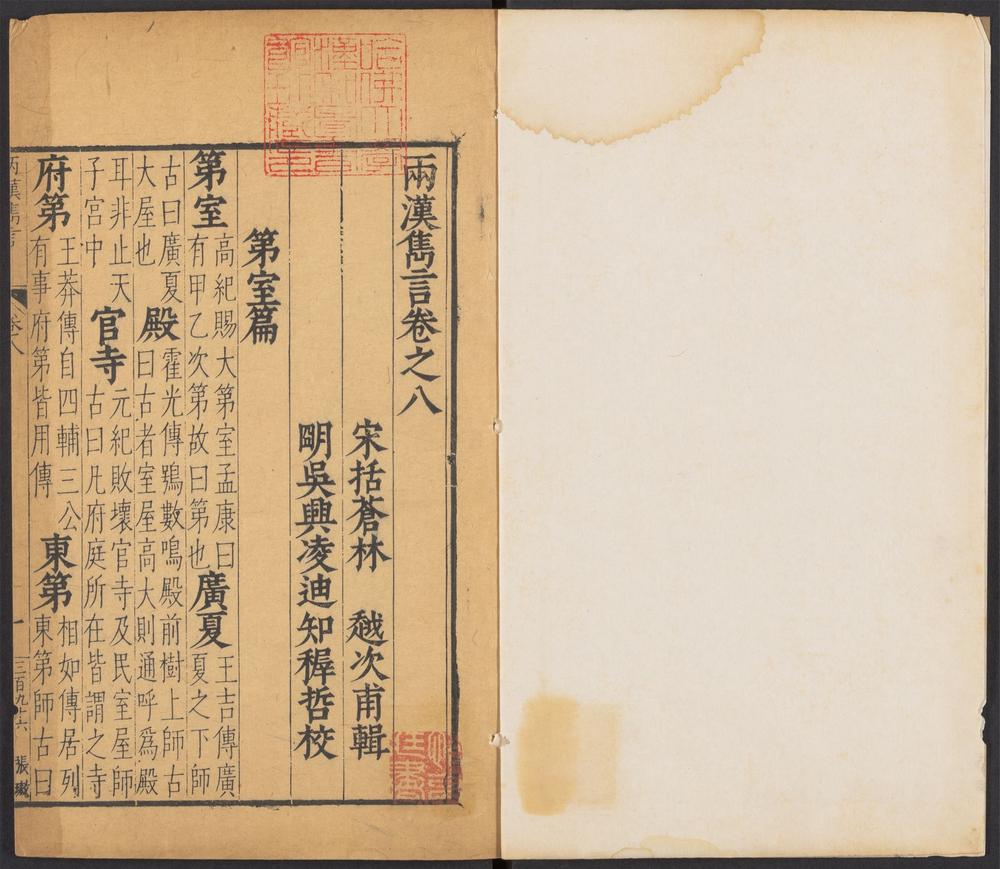 兩漢雋言卷之八
宋括蒼林 越次甫輯
明吳興凌迪知稺哲校
第室篇
第室 高紀賜大第室孟康曰
有甲乙次第故曰第也 廣夏 王吉傳廣
夏之下師
古曰廣夏
大屋也 殿 霍光傳鴞數鳴殿前樹上師古
曰古者室屋高大則通呼爲殿
耳非止天
子宮中 官寺 元紀敗壞官寺及民室屋師
古曰凡府庭所在皆謂之寺
府第 王莽傳自四輔三公
有事府第皆用傳 東第 相如傳居列
東第師古曰
兩漢雋言
卷八
一
三百九十六
張璈